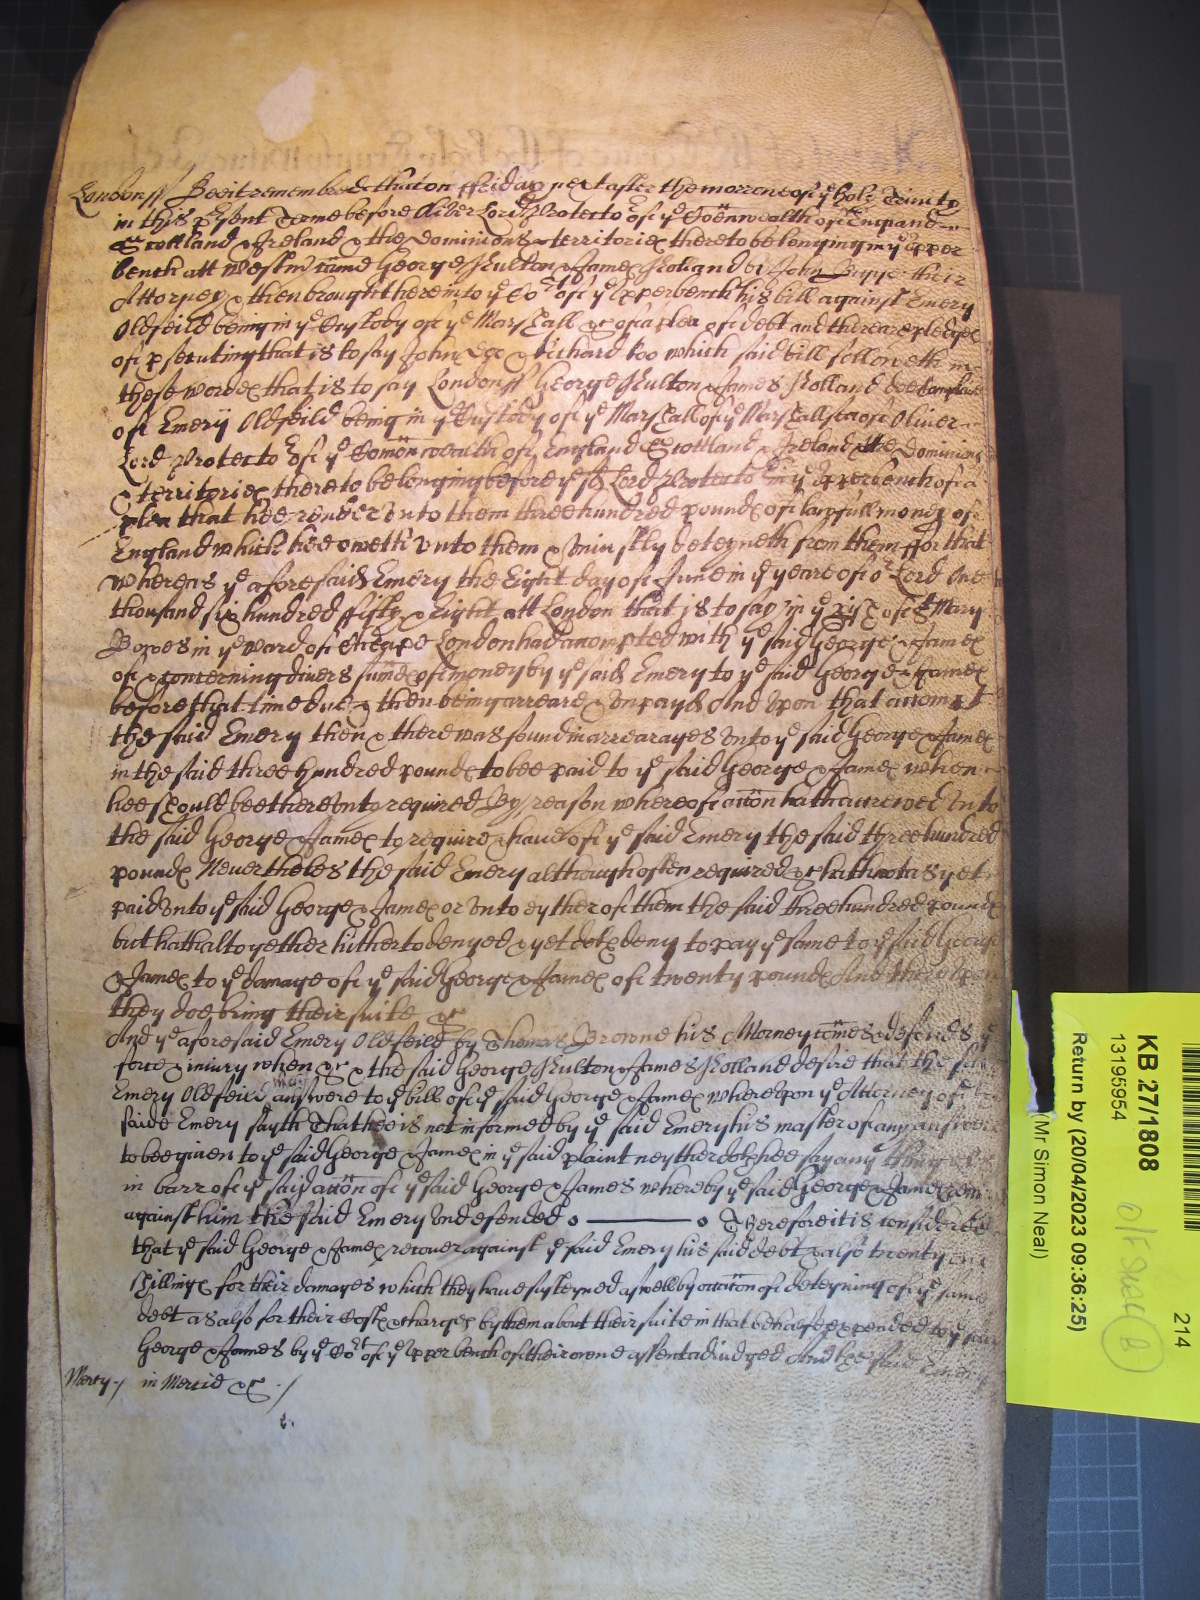 London ss Bee it remembred that on ffriday next after the morrowe of ye holy Trinity
in this psent Terme before Oliver Lord Protector of ye Comonwealth of England
Scottland & Ireland & the dominions & territories thereto belonging in ye upper
bench att Westmr came George Rulton & James Rolland by John their
Attorney & then brought here into ye Cort of ye upper bench his bill against Emery
Oldfeild being in ye Custody of ye Marshall &c of a plea of debt and there are pledges
of psecuting that is to say John Doe & Richard Roo which said bill followeth in
these wordes that is to say London ss George Rulton & James Rolland doe complaine
of Emery Oldfeild being in ye Custody of ye Marshall of ye Marshallsea of Oliver
Lord Protector of ye Comonwealth of England Scottland & Ireland & the Dominions
& territories thereto belonging before ye sd Lord Protector in ye upper bench of a
plea that hee render unto them three hundred pounds of lawfull money of
England which hee oweth unto them & uniustly deteyneth from them ffor that
whereas ye aforesaid Emery the Eight day of June in ye yeare of or Lord One
thousand six hundred fifty & Eight att London that is to say in ye pish of St Mary
Bowes in ye ward of Cheape London had accompted with ye said George & James
of & concerning divers sumes of money by ye said Emery to ye said George & James
before that time due & then being arreare & unpayd And upon that accompt
the said Emery then & there was found in arrearages unto ye said George & James
in the said three hundred pounds to bee paid to ye said George & James when
hee should bee thereunto required By reason whereof accon hath accrewed unto
the said George & James to require & have of ye said Emery the said three hundred
pounds Nevertheles the said Emery although often required &c hath not as yet
paid unto ye said George & James or unto eyther of them the said three hundred pounds
but hath altogether hitherto denyed & yet doth deny to pay ye same to ye said George
& James to ye damage of ye said George & James of twenty pounds And thereupon
they doe bring their suite &c
And ye aforesaid Emery Oldfeild by Thomas Browne his Attorney comes & defends ye
force & iniury when &c & the said George Rulton & James Rolland desire that the said
Emery Oldfeild may answere to ye bill of ye said George & James whereupon ye Attorney of ye
saide Emery sayth That hee is not informed by ye said Emery his master of any answere
to bee given to ye said George & James in ye said plaint neyther doth hee say any thing
in barr of ye said accon of ye said George & James whereby ye said George & James
against him the said Emery undefended Therefore it is considered
that ye said George & James recover against ye said Emery his said debt & also twenty
shillings for their damages which they have susteyned aswell by occasion of deteyning of ye same
debt as also for their Costs & charges by them about their suite in that behalfe expended to ye said
George & James by ye Cort of ye upper bench of their owne assent adiudged And ye said Emery
Mercy in Mercie &c
KB 27/1808
13195954
Return by (20/04/2023 09:36:25)
(Mr Simon Neal)
214